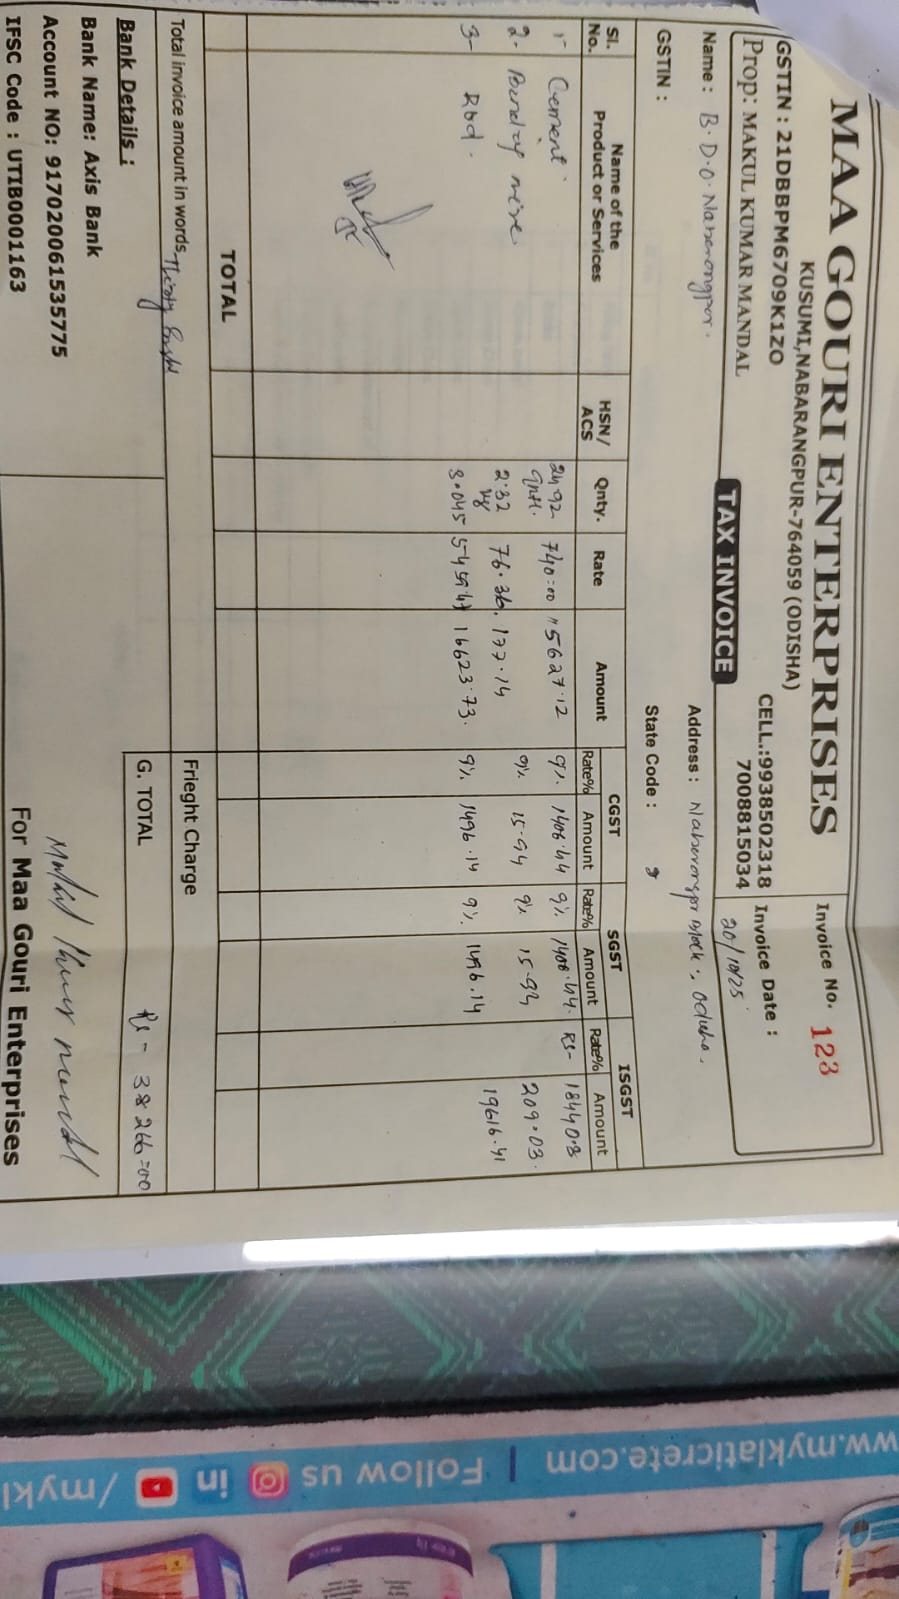 MAA GOURI ENTERPRISES
KUSUMI,NABARANGPUR-764059 (ODISHA)
GSTIN : 21DBBPM6709K1ZO
CELL.:9938502318
7008815034
Prop: MAKUL KUMAR MANDAL
TAX INVOICE
Invoice No. 123
Invoice Date :
20/10/25
Name : B.D.O. Naberongpur.
Address : Naberongpur Block, Odisha.
GSTIN :
State Code :
Sl. No. Name of the Product or Services HSN/ ACS Qnty. Rate Amount CGST Rate% Amount SGST Rate% Amount ISGST Rate% Amount
1- Cement. 740=00 15627.12 9%. 1406.44 9%. 1406.44. Rs-
2- 2.32 kg 76.36. 177.14 9% 15.94 9% 15.94 209.03.
3- Rod. 3.045 5459.47 16623.73. 9%. 1496.14 9%. 1496.14 19616.41
TOTAL
Total invoice amount in words
Frieght Charge
G. TOTAL Rs- 38266=00
Bank Details :
Bank Name: Axis Bank
Account NO: 917020061535775
IFSC Code : UTIB0001163
For Maa Gouri Enterprises
ww.myklaticrete.com | Follow us
/mykl